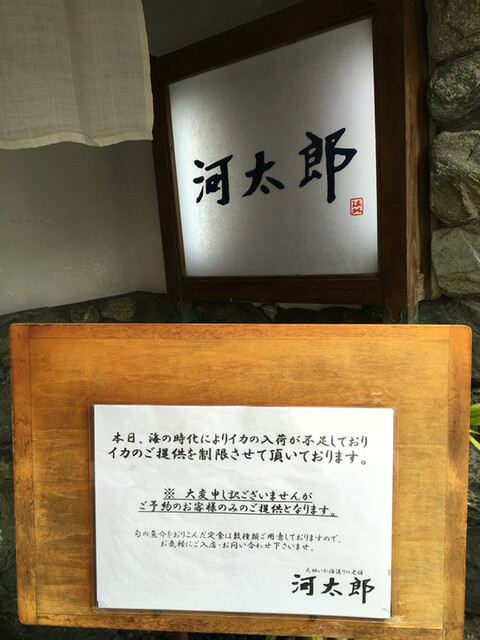 河太郎
本日、海の時化によりイカの入荷が不足しており
イカのご提供を制限させて頂いております。
※ 大変申し訳ございませんが
ご予約のお客様のみのご提供となります。
旬の魚介をおりこんだ定食は数種類ご用意しておりますので、
お気軽にご入店・お問い合わせ下さいませ。
元祖いか活造りの老舗
河太郎